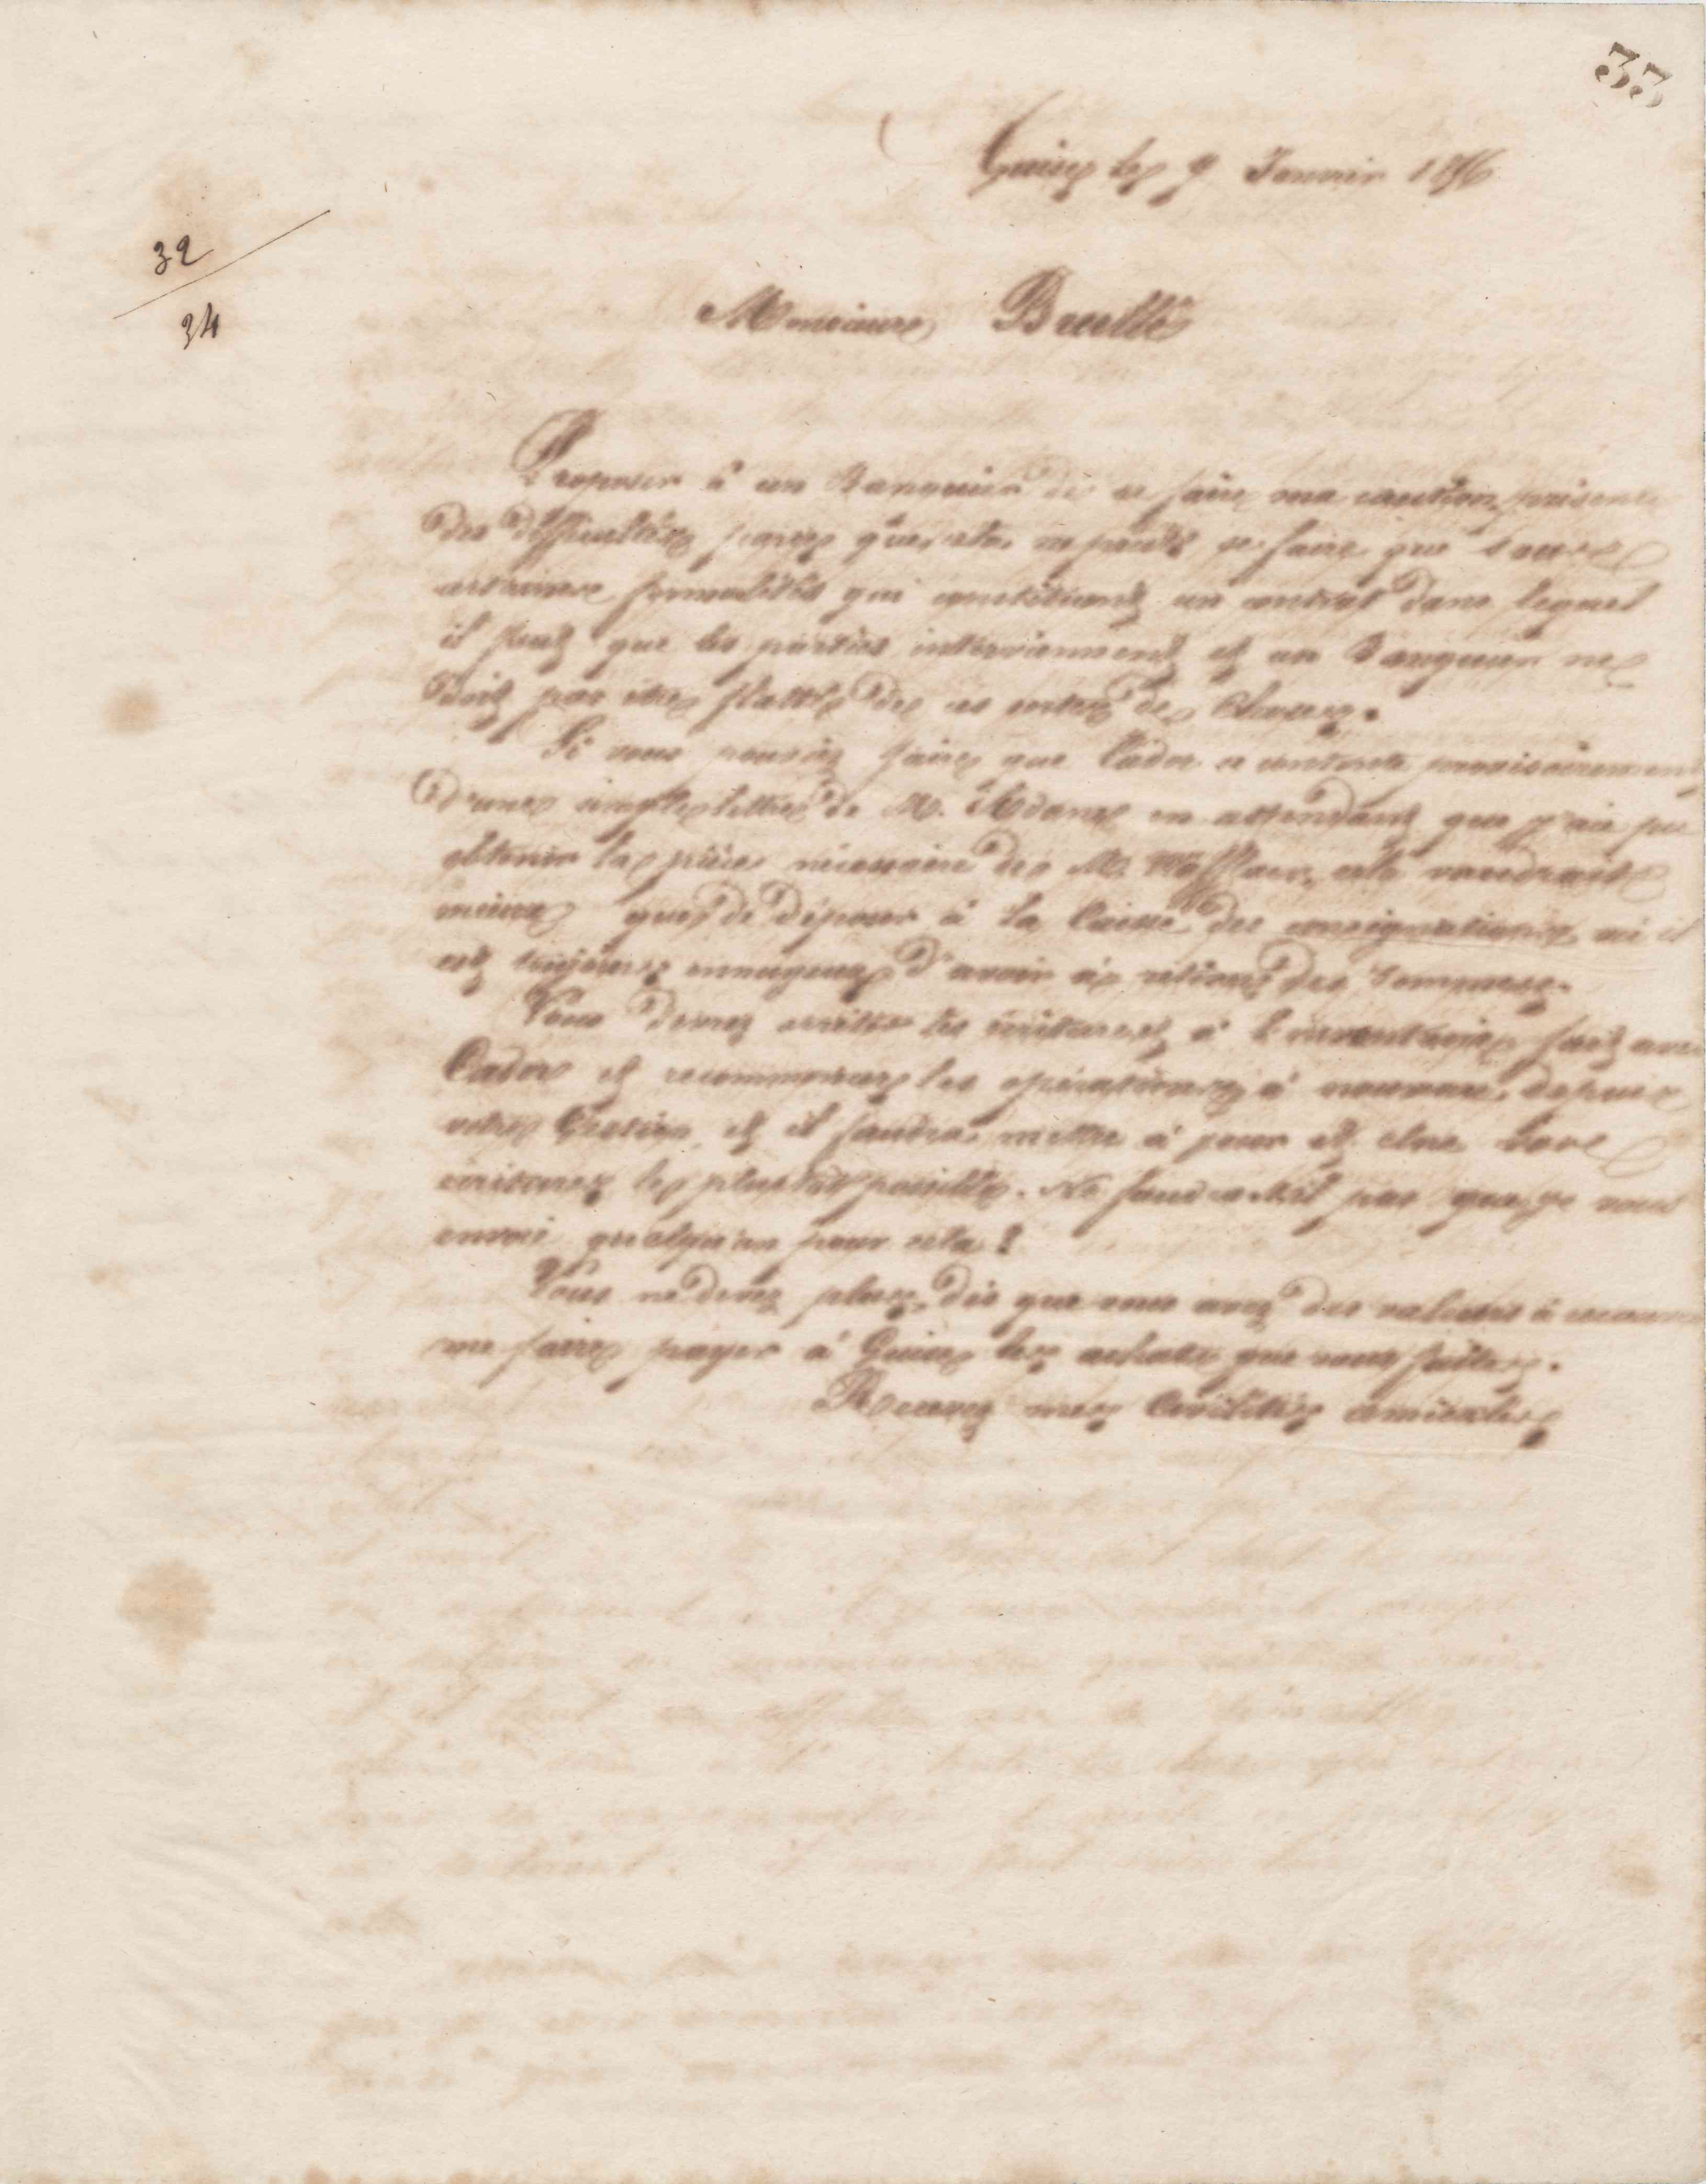 33
Guise le 9 Janvier 1856
32
34
Monsieur Brullé
Proposer à un Banquier de se faire ma caution présente
des difficultés parce que cela ne peut se faire que sous
certaines formalités qui constituent un contrat dans lequel
il faut que les parties interviennent et un Banquier ne
doit pas être flatté de ces sortes de choses.
Si vous pouviez faire que Cador se contente provisoirement
d'une simple lettre de M. en attendant que j'aie pu
obtenir la pièce nécessaire de M. cela vaudrait
mieux que de déposer à la Caisse des consignations où il
est toujours ennuyeux d'avoir à retirer des sommes.
Vous devez arrêter les écritures à l'inventaire fait avec
Cador et recommencer les opérations à nouveau depuis
votre Gestion et il faudra mettre à jour et clore
écritures le plus tôt possible. Ne faudrait-il pas que je vous
envoie quelqu'un pour cela ?
Vous ne devez plus, dès que vous avez des valeurs à
me faire payer à Guise les achats que vous faites.
Recevez mes Civilités amicales